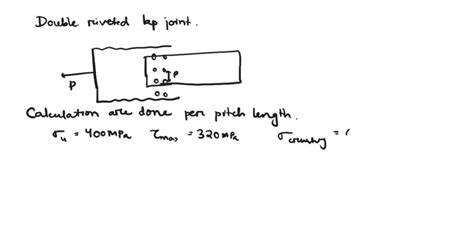 Double riveted lap joint.
P
P
Calculation are done per pitch length.
σu = 400MPa τmax = 320MPa σcrushing =